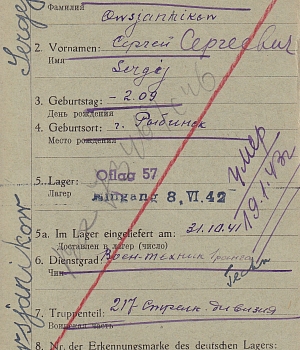 Фамилия
Owsjannikow
2. Vornamen: Сергей Сергеевич
Имя
Sergej
3. Geburtstag: – 2.09
День рождения
4. Geburtsort: г. Рыбинск
Место рождения
5. Lager: Oflag 57
Лагерь
Eingang 8. VI. 42
умер 19.1.43г
5a. Im Lager eingeliefert am: 31.10.41
Доставлен в лагерь (число)
6. Dienstgrad: Воен-техник
Чин
7. Truppenteil: 217 Стрелк. дивизия
Воинская часть
8. Nr. der Erkennungsmarke des deutschen Lagers: